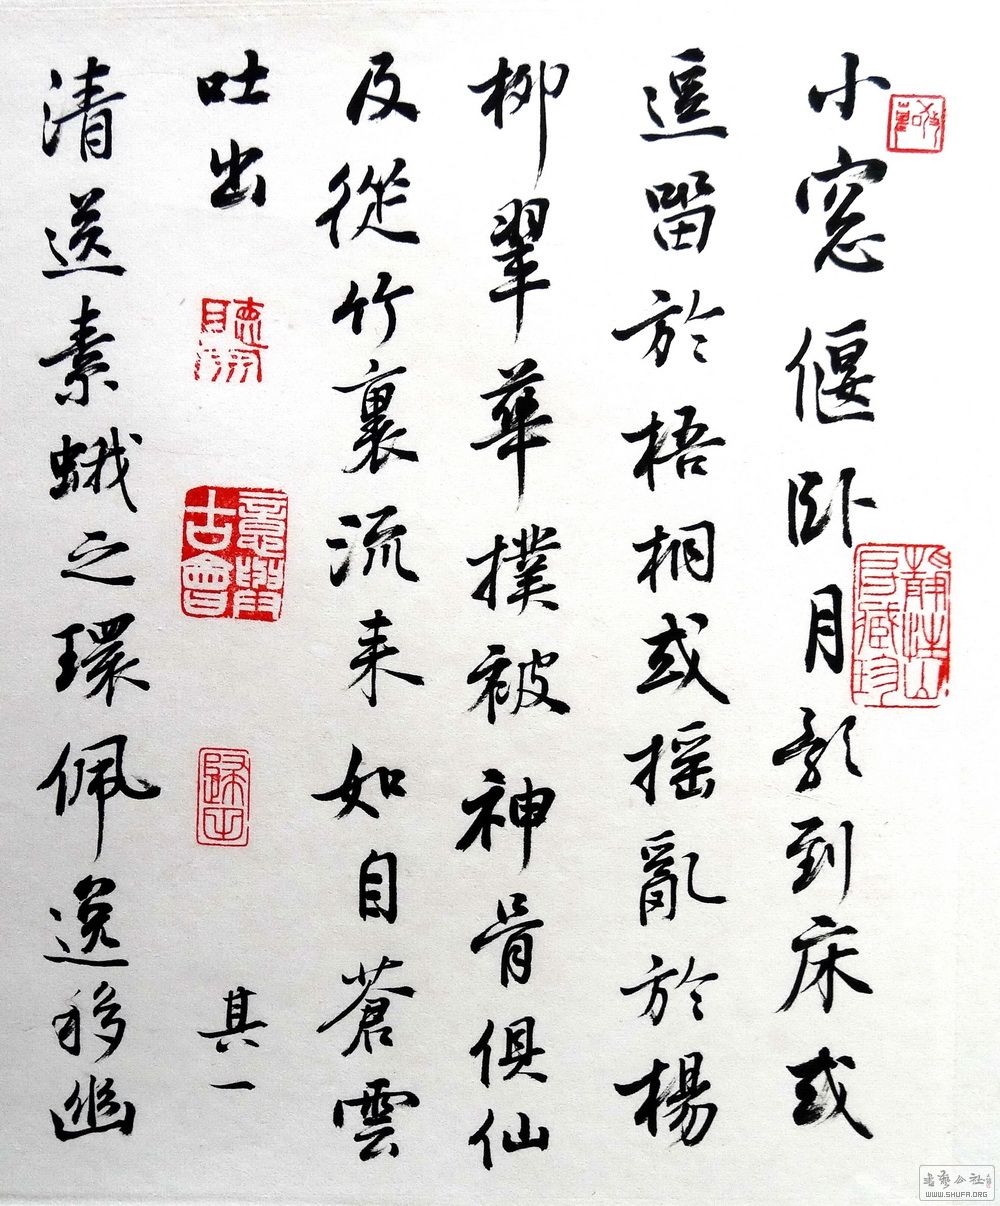 小窓偃卧月影到床或
逗留於梧桐或摇亂於楊
柳翠華撲被神骨俱仙
及從竹裏流来如自蒼雲
吐出
意與古會
其一
清送素蛾之環佩逸移幽
书艺公社
WWW.SHUFA.ORG